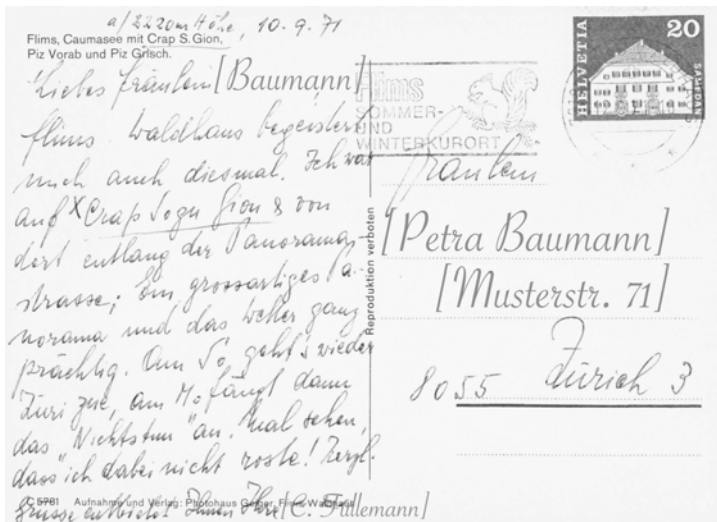 a/2220m Höhe, 10.9.71
Flims, Caumasee mit Crap S.Gion,
Piz Vorab und Piz Grisch.
Liebes Fräulein [Baumann]
Flims Waldhaus begeistert
mich auch diesmal. Ich war
auf x Crap Sogn Gion & von
dort entlang der Panorama-
strasse; Ein grossartiges Pa-
norama und das Wetter ganz
prächtig. Am So geht's wieder
Züri zue, am Mo fängt dann
das "Nichtstun" an. Mal sehen,
dass ich dabei nicht roste! Herzl.
Grüsse entbietet Ihnen Ihre [C. Füllemann]
C 5781 Aufnahme und Verlag: Photohaus Geiger, Flims-Waldhaus
Reproduktion verboten
Flims
SOMMER-
UND
WINTERKURORT
HELVETIA
20
SAMEDAN
Fräulein
[Petra Baumann]
[Musterstr. 71]
8055 Zürich 3